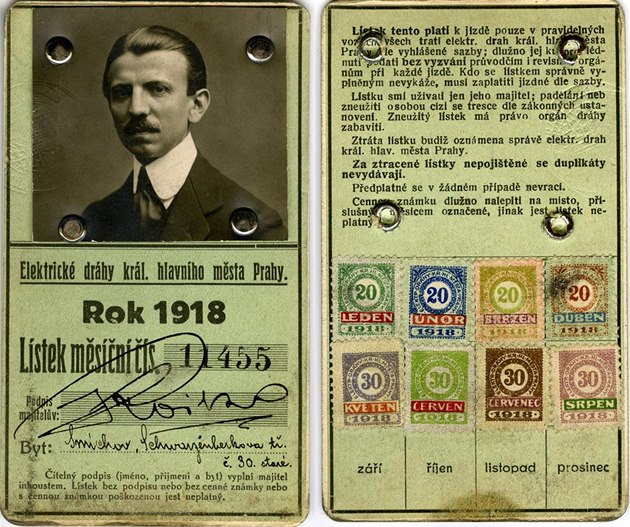 Elektrické dráhy král. hlavního města Prahy.
Rok 1918
Lístek měsíční čís. 11455
Podpis
majitelův:
Byt: Smíchov, Schwarzenberkova tř.
č. 30. staré.
Čitelný podpis (jméno, příjmení a byt) vyplní majitel
inkoustem. Lístek bez podpisu nebo bez cenné známky nebo
s cennou známkou poškozenou jest neplatný.
Lístek tento platí k jízdě pouze v pravidelných
vozech všech tratí elektr. drah král. hlav. města
Prahy dle vyhlášené sazby; dlužno jej ku prohléd-
nutí podati bez vyzvání průvodčím i revisním orgá-
nům při každé jízdě. Kdo se lístkem správně vy-
plněným nevykáže, musí zaplatiti jízdné dle sazby.
Lístku smí užívati jen jeho majitel; padělání neb
zneužití osobou cizí se tresce dle zákonných usta-
novení. Zneužitý lístek má právo orgán dráhy
zabaviti.
Ztráta lístku budiž oznámena správě elektr. drah
král. hlav. města Prahy.
Za ztracené lístky nepojištěné se duplikáty
nevydávají.
Předplatné se v žádném případě nevrací.
Cennou známku dlužno nalepiti na místo, pří-
slušným měsícem označené, jinak jest lístek ne-
platný.
20 LEDEN 1918
20 ÚNOR 1918
20 BŘEZEN 1918
20 DUBEN 1918
30 KVĚTEN 1918
30 ČERVEN 1918
30 ČERVENEC 1918
30 SRPEN 1918
září říjen listopad prosinec